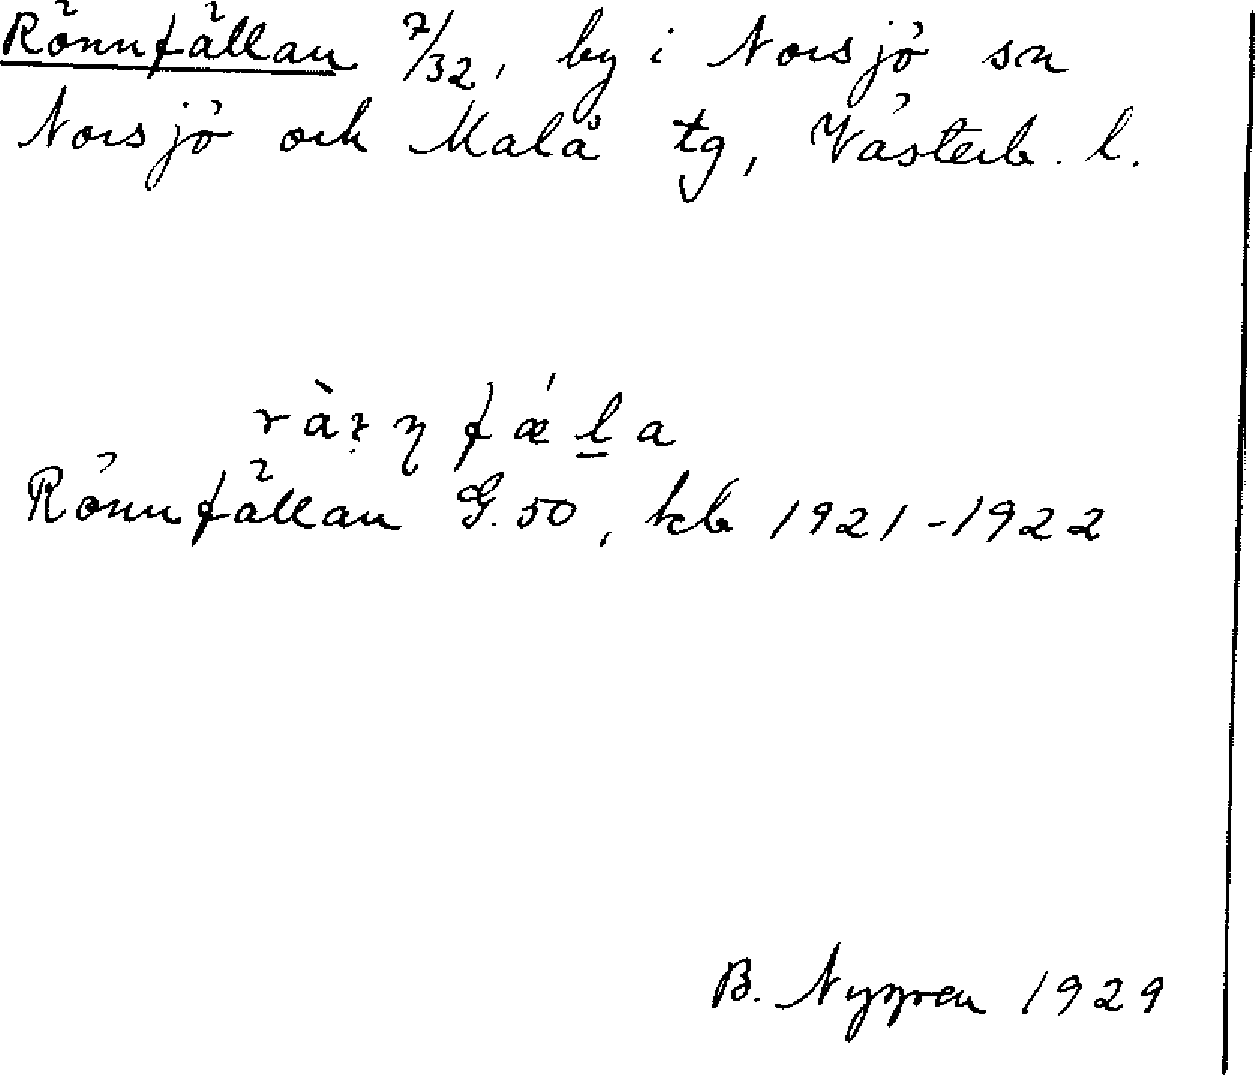 Rönnfällan 7/32, by i Norsjö sn
Norsjö och Malå tg, Västerb. l.
Rönnfällan G.50, kb 1921-1922
B. Nygren 1929